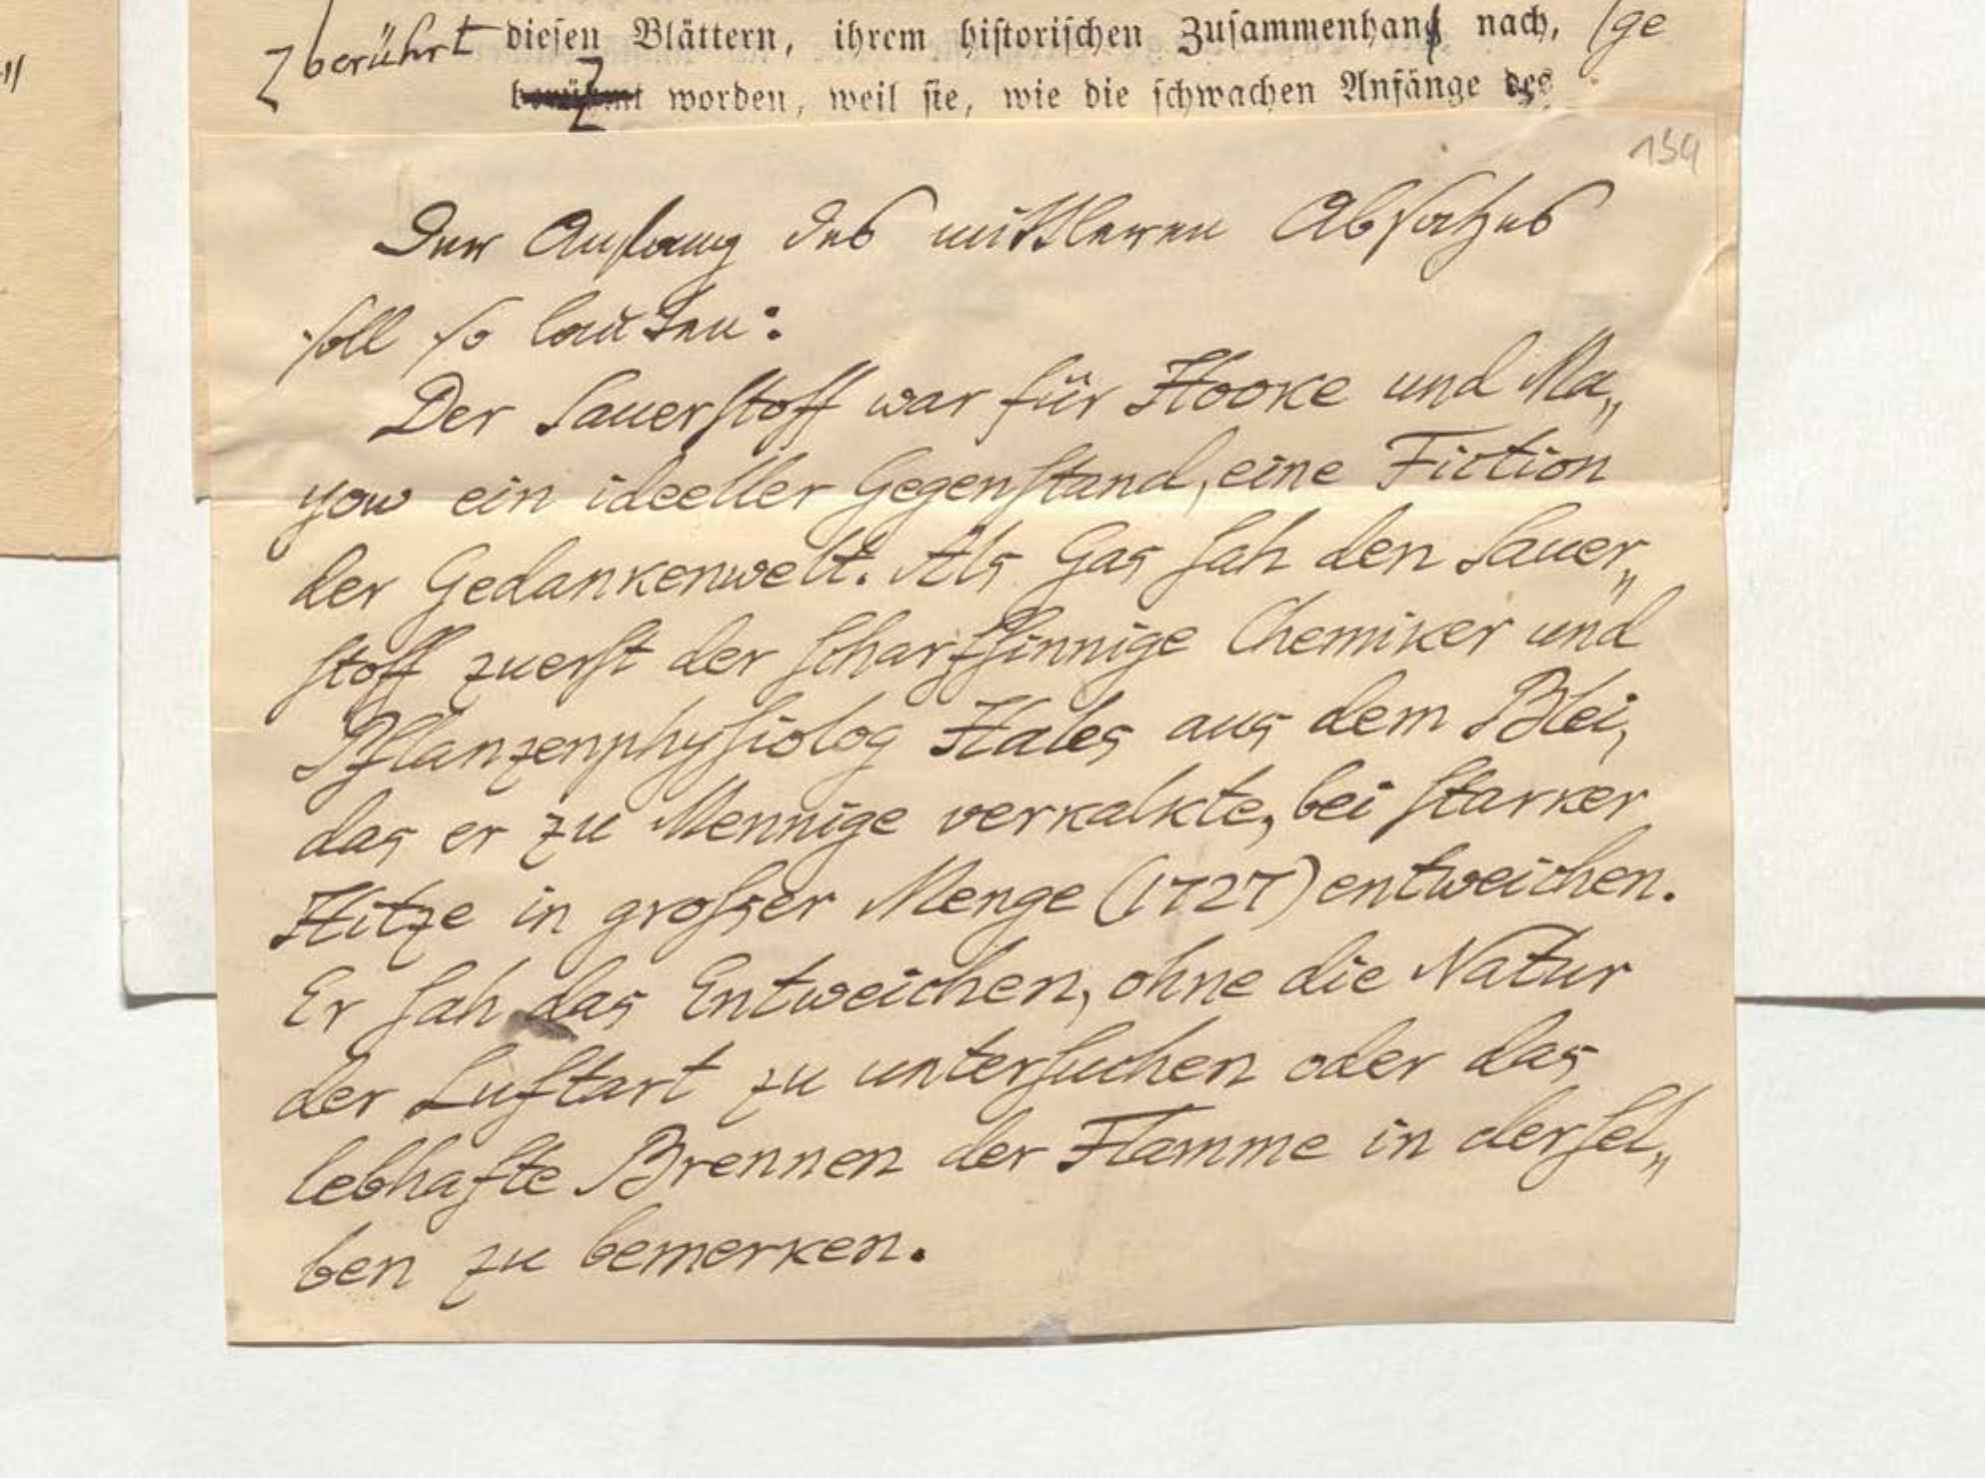 berührt diesen Blättern, ihrem historischen Zusammenhang nach, ge
worden, weil sie, wie die schwachen Anfänge des
134
Der Anfang des mittleren Absatzes
soll so lauten:
Der Sauerstoff war für Hooke und Ma„
yow ein ideeller Gegenstand, eine Fiction
der Gedankenwelt. Als Gas sah den Sauer„
stoff zuerst der scharfsinnige Chemiker und
Pflanzenphysiolog Hales aus dem Blei,
das er zu Mennige verkalkte, bei starker
Hitze in grosser Menge (1727) entweichen.
Er sah das Entweichen, ohne die Natur
der Luftart zu untersuchen oder das
lebhafte Brennen der Flamme in dersel„
ben zu bemerken.